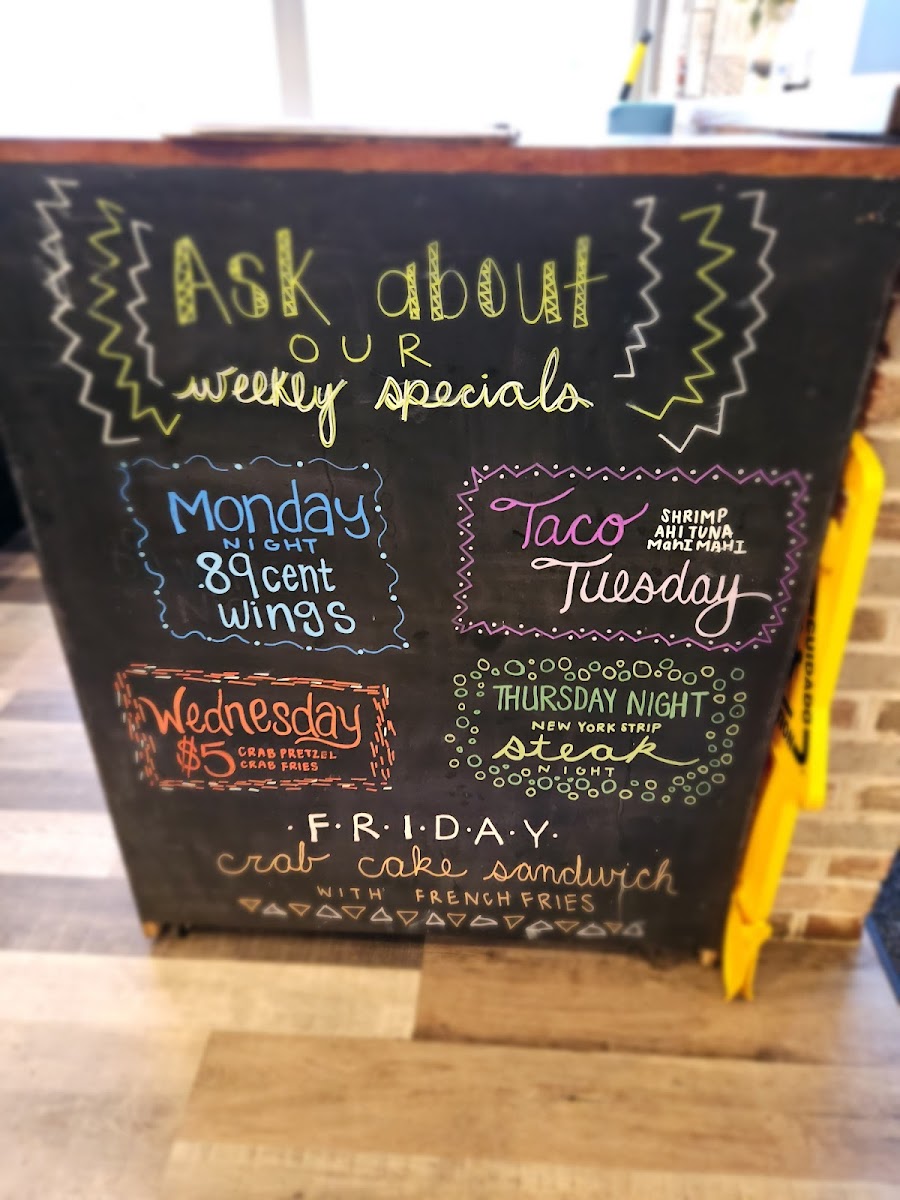 Ask about
OUR
weekly specials
Monday
NIGHT
.89 cent
wings
Taco
SHRIMP
AHI TUNA
MAHI MAHI
Tuesday
Wednesday
$5 CRAB PRETZEL
CRAB FRIES
THURSDAY NIGHT
NEW YORK STRIP
steak
NIGHT
·F·R·I·D·A·Y·
crab cake sandwich
WITH FRENCH FRIES